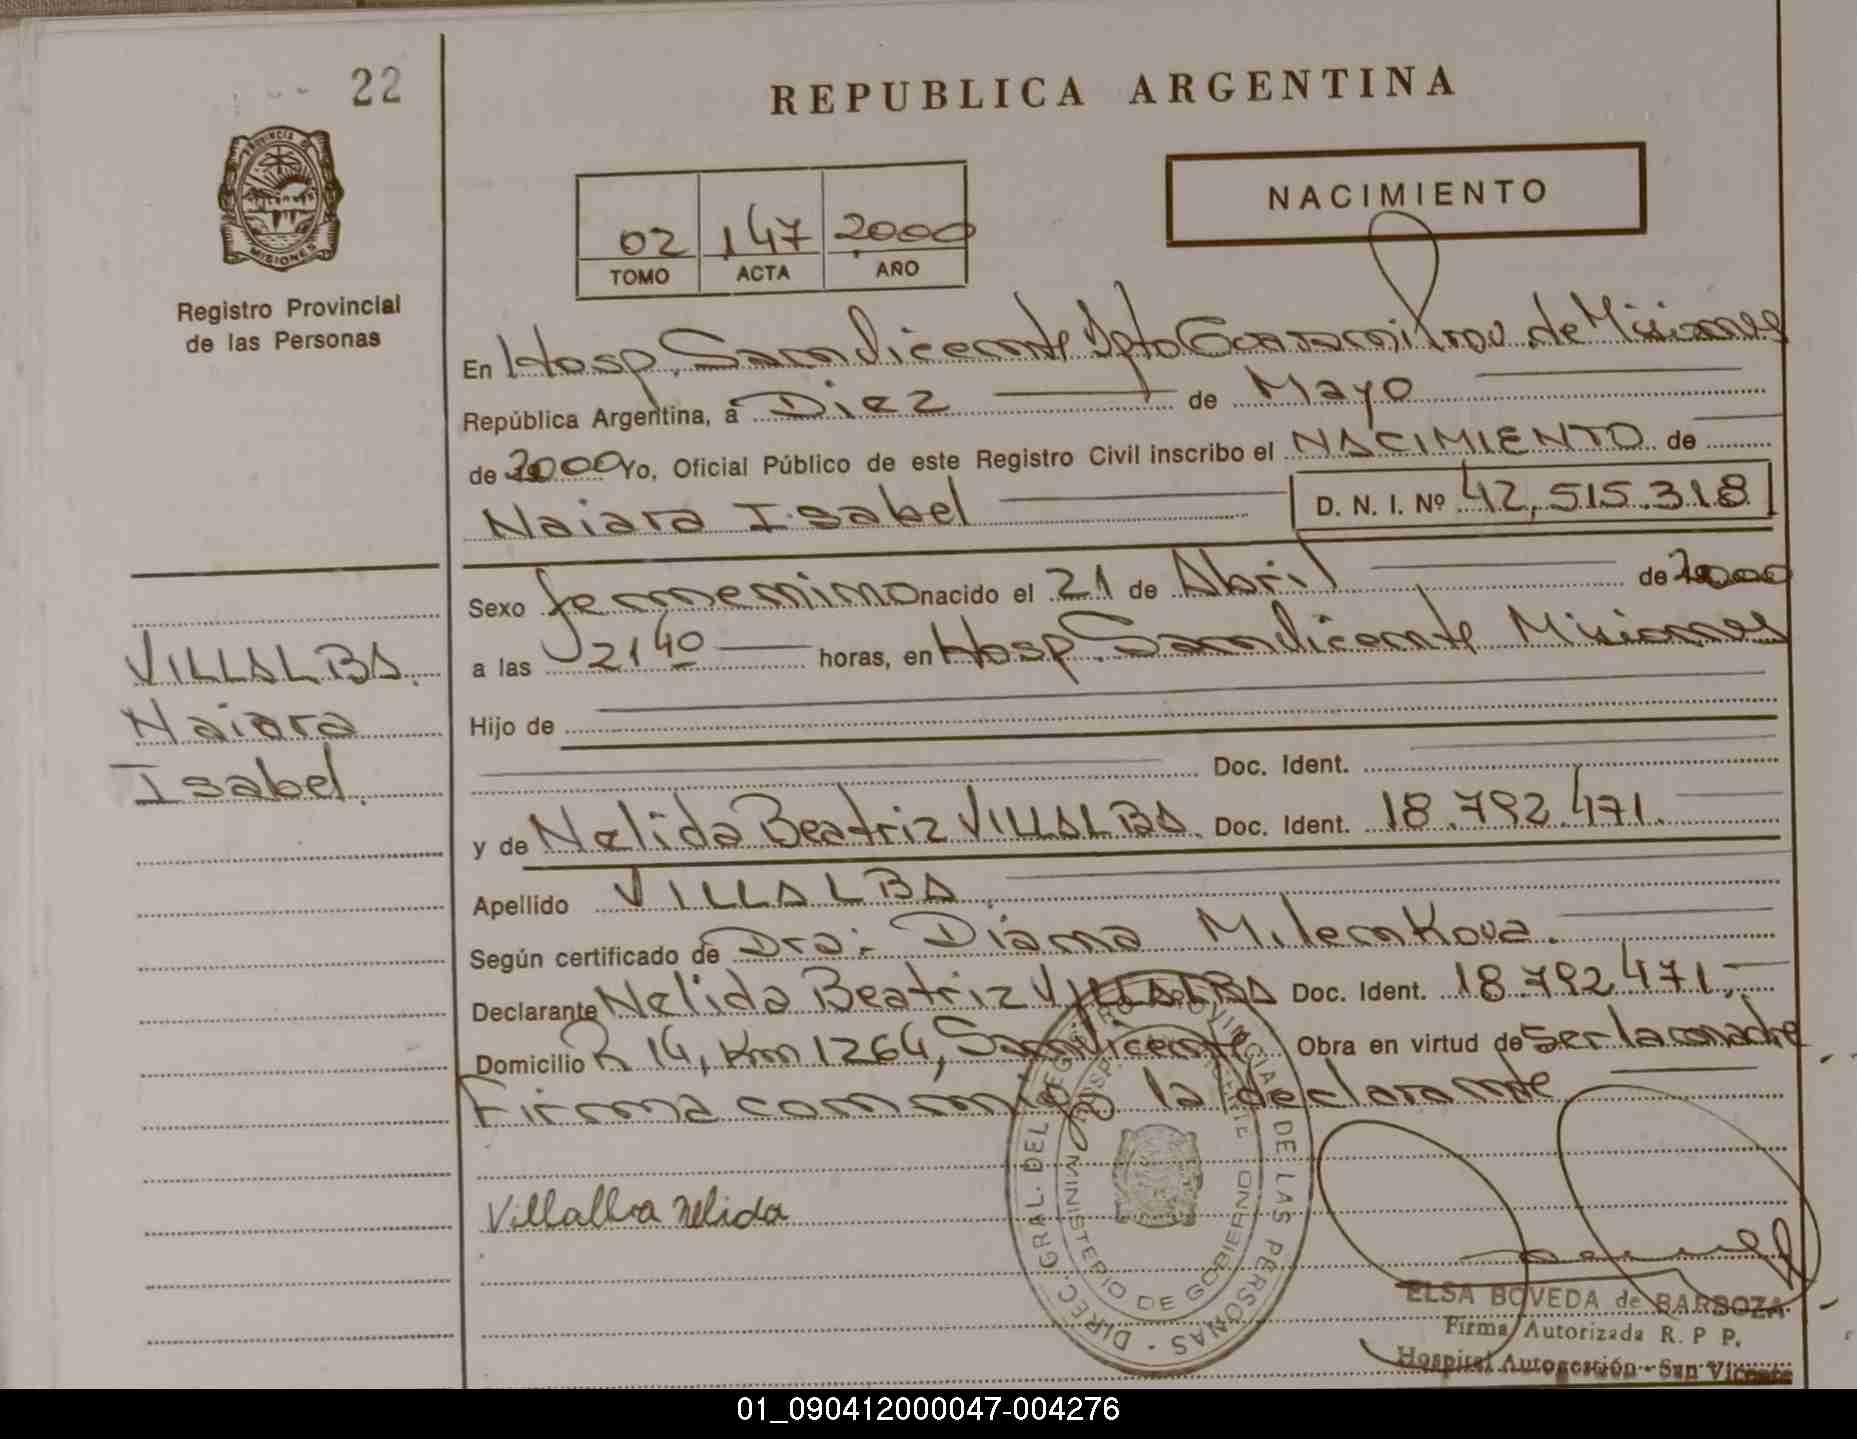 22
REPUBLICA ARGENTINA
PROVINCIA DE
MISIONES
Registro Provincial
de las Personas
02 147 2000
TOMO ACTA AÑO
NACIMIENTO
En Hosp. San Vicente Dpto Guaraní Prov. de Misiones
República Argentina, a Diez de Mayo
de 2000 Yo, Oficial Público de este Registro Civil inscribo el NACIMIENTO de
Naiara Isabel D. N. I. Nº 42,515.318
Sexo femenino nacido el 21 de Abril de 2000
a las 21 40 horas, en Hosp. San Vicente Misiones
Hijo de
Doc. Ident.
y de Nelida Beatriz VILLALBA Doc. Ident. 18.792.471.
Apellido VILLALBA
Según certificado de Dra: Diana Milenkova.
Declarante Nelida Beatriz VILLALBA Doc. Ident. 18.792.471.
Domicilio R 14, Km 1264, San Vicente Obra en virtud de ser la madre
Firma conmigo la declarante
VILLALBA.
Naiara
Isabel.
Villalba Nelida
DIREC. GRAL. DEL REGISTRO PROVINCIAL DE LAS PERSONAS
MINISTERIO DE GOBIERNO
ELSA BOVEDA de BARBOZA
Firma Autorizada R. P P.
Hospital Autogestión - San Vicente
01_090412000047-004276